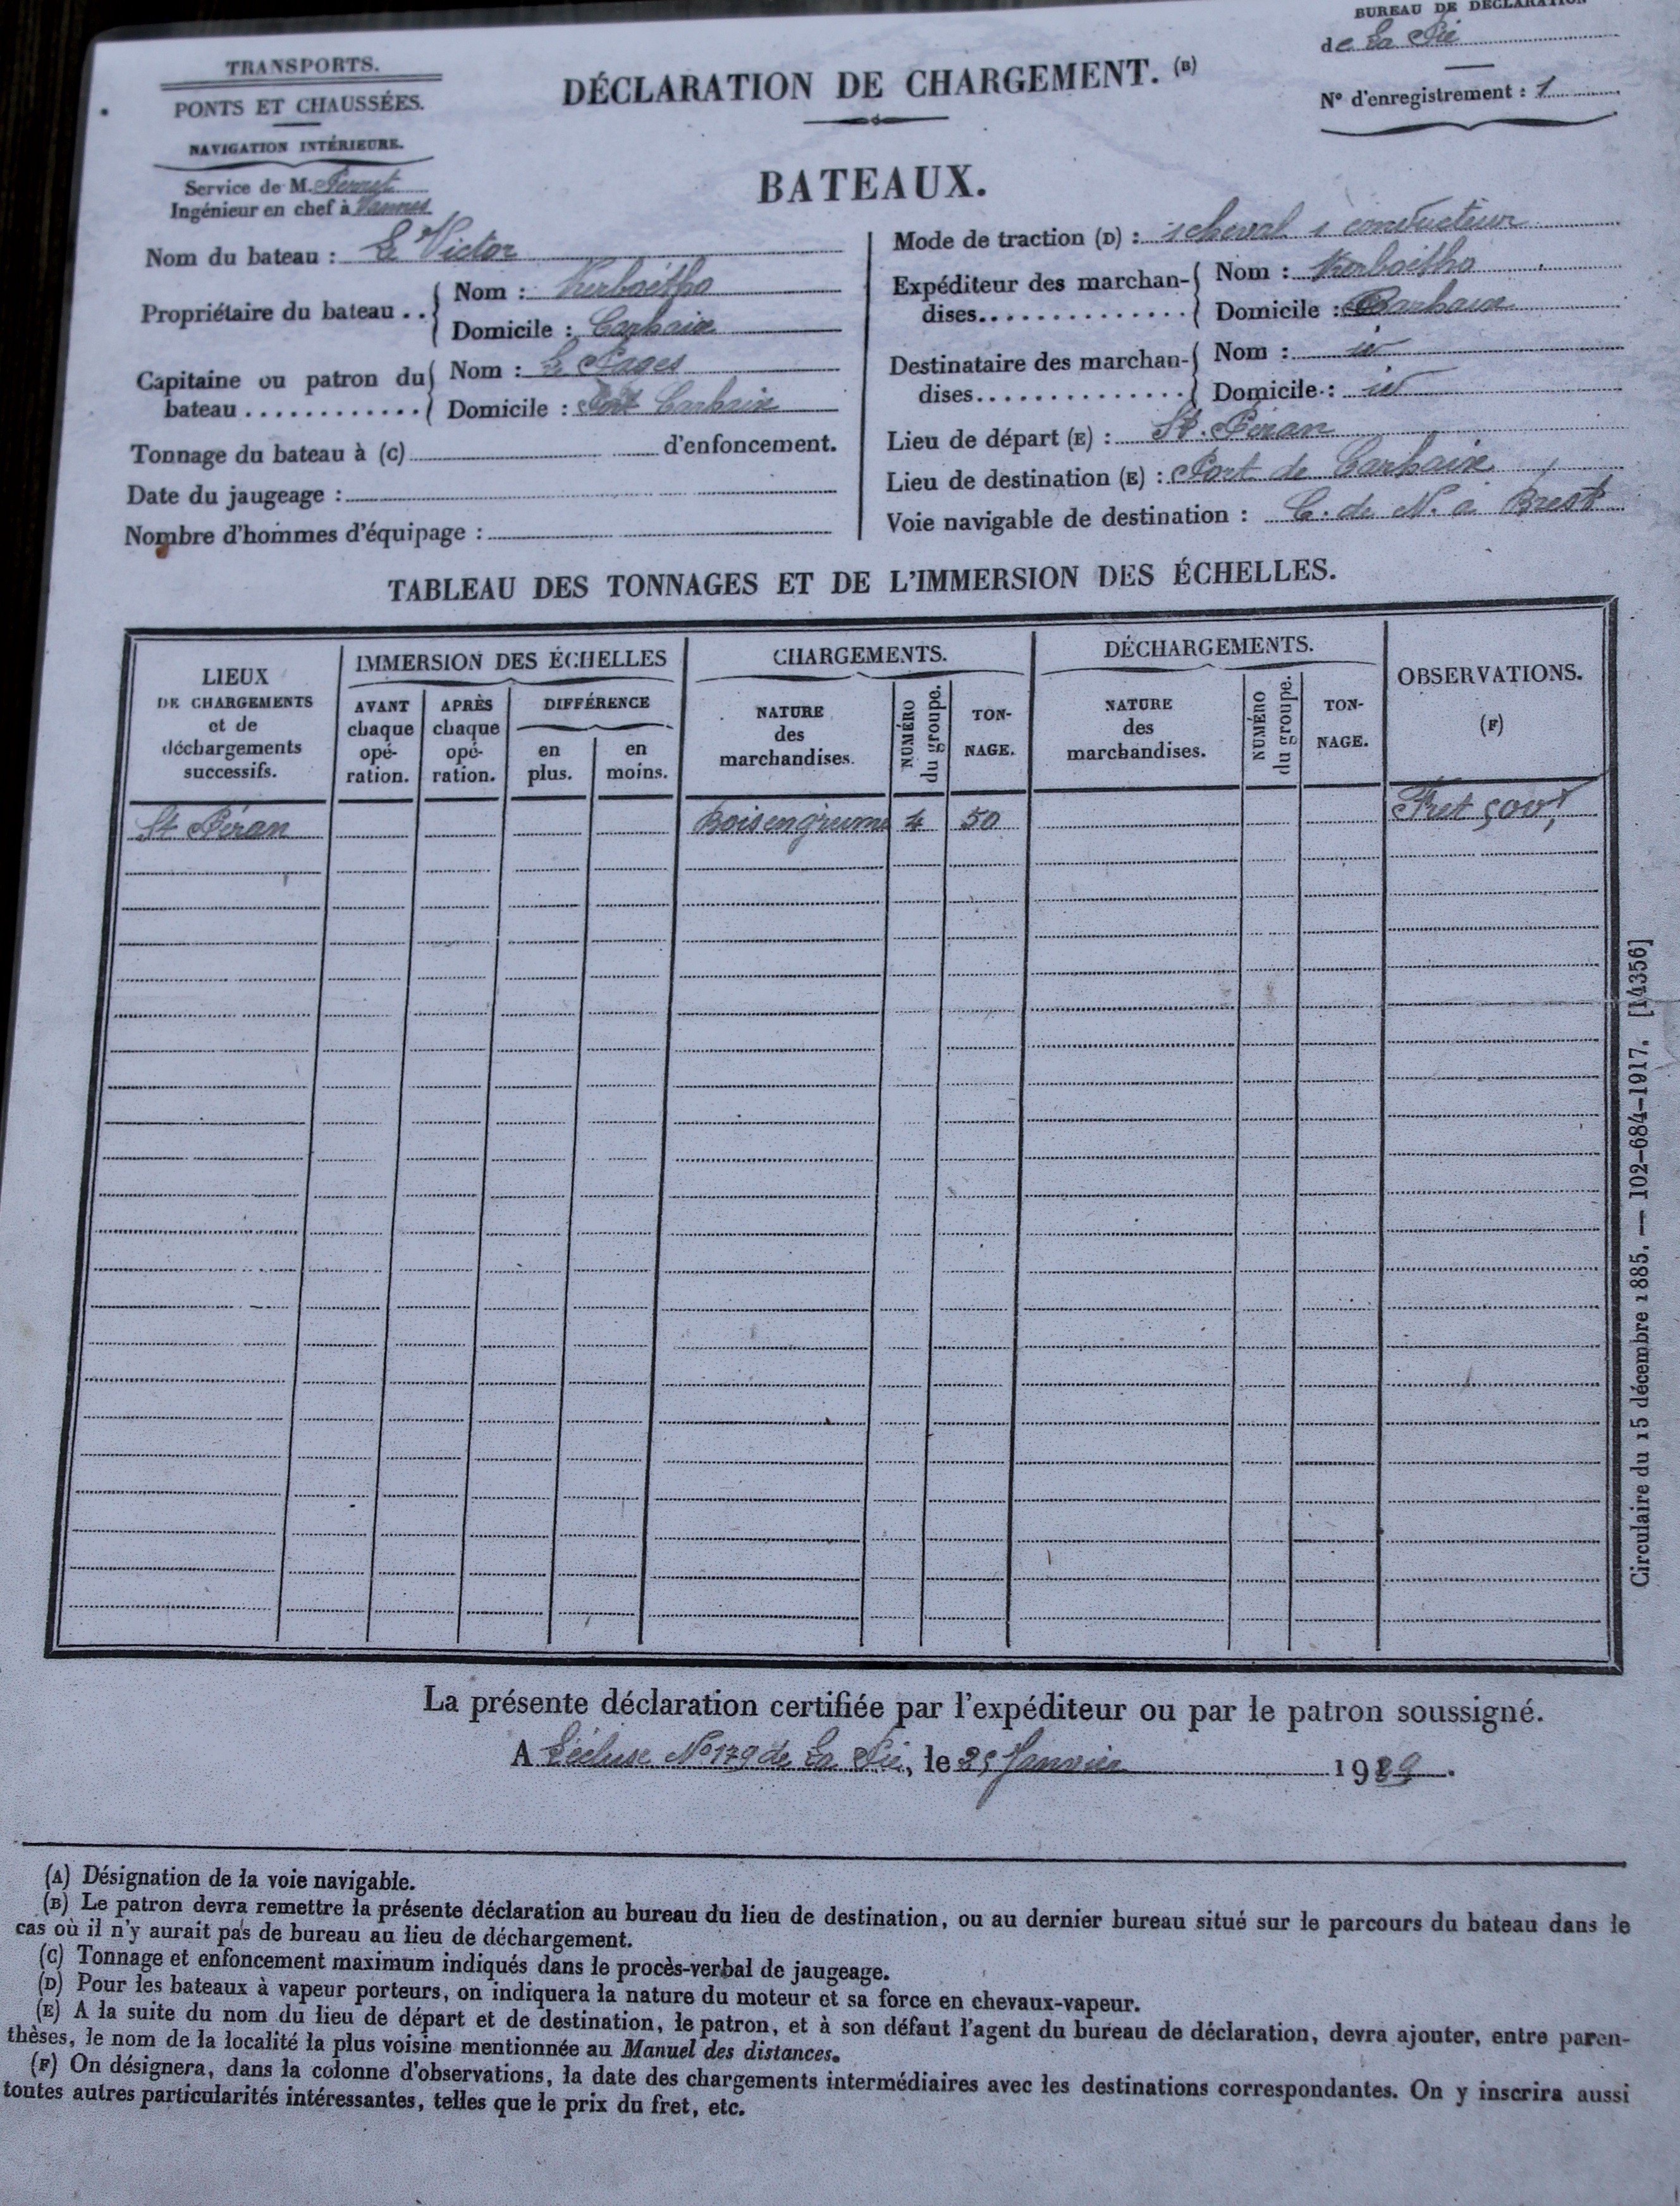 BUREAU DE DÉCLARATION
de La Pie
N° d'enregistrement : 1
TRANSPORTS.
PONTS ET CHAUSSÉES.
NAVIGATION INTÉRIEURE.
Service de M.
Ingénieur en chef à Vannes
DÉCLARATION DE CHARGEMENT. (B)
BATEAUX.
Nom du bateau : Le Victor
Propriétaire du bateau .. Nom : Kerboëtho
Domicile : Carhaix
Capitaine ou patron du bateau ............ Nom : Le Pages
Domicile : Port Carhaix
Tonnage du bateau à (C) d'enfoncement.
Date du jaugeage :
Nombre d'hommes d'équipage :
Mode de traction (D) : 1 cheval 1 conducteur
Expéditeur des marchandises.............. Nom : Kerboëtho
Domicile : Carhaix
Destinataire des marchandises.............. Nom :
Domicile :
Lieu de départ (E) : St. Péran
Lieu de destination (E) : Port de Carhaix
Voie navigable de destination : C. de N. à Brest
TABLEAU DES TONNAGES ET DE L'IMMERSION DES ÉCHELLES.
LIEUX
DE CHARGEMENTS
et de
déchargements
successifs.
IMMERSION DES ÉCHELLES
AVANT
chaque
opé-
ration.
APRÈS
chaque
opé-
ration.
DIFFÉRENCE
en
plus.
en
moins.
CHARGEMENTS.
NATURE
des
marchandises.
NUMÉRO
du groupe.
TON-
NAGE.
DÉCHARGEMENTS.
NATURE
des
marchandises.
NUMÉRO
du groupe.
TON-
NAGE.
OBSERVATIONS.
(F)
St Péran Bois en grume 4 50 Fret
Circulaire du 15 décembre 1885. — 102-684-1917. [14356]
La présente déclaration certifiée par l'expéditeur ou par le patron soussigné.
A L'écluse N° 179 de La Pie, le 25 Janvier 1929.
(A) Désignation de la voie navigable.
(B) Le patron devra remettre la présente déclaration au bureau du lieu de destination, ou au dernier bureau situé sur le parcours du bateau dans le
cas où il n'y aurait pas de bureau au lieu de déchargement.
(C) Tonnage et enfoncement maximum indiqués dans le procès-verbal de jaugeage.
(D) Pour les bateaux à vapeur porteurs, on indiquera la nature du moteur et sa force en chevaux-vapeur.
(E) A la suite du nom du lieu de départ et de destination, le patron, et à son défaut l'agent du bureau de déclaration, devra ajouter, entre paren-
thèses, le nom de la localité la plus voisine mentionnée au Manuel des distances.
(F) On désignera, dans la colonne d'observations, la date des chargements intermédiaires avec les destinations correspondantes. On y inscrira aussi
toutes autres particularités intéressantes, telles que le prix du fret, etc.